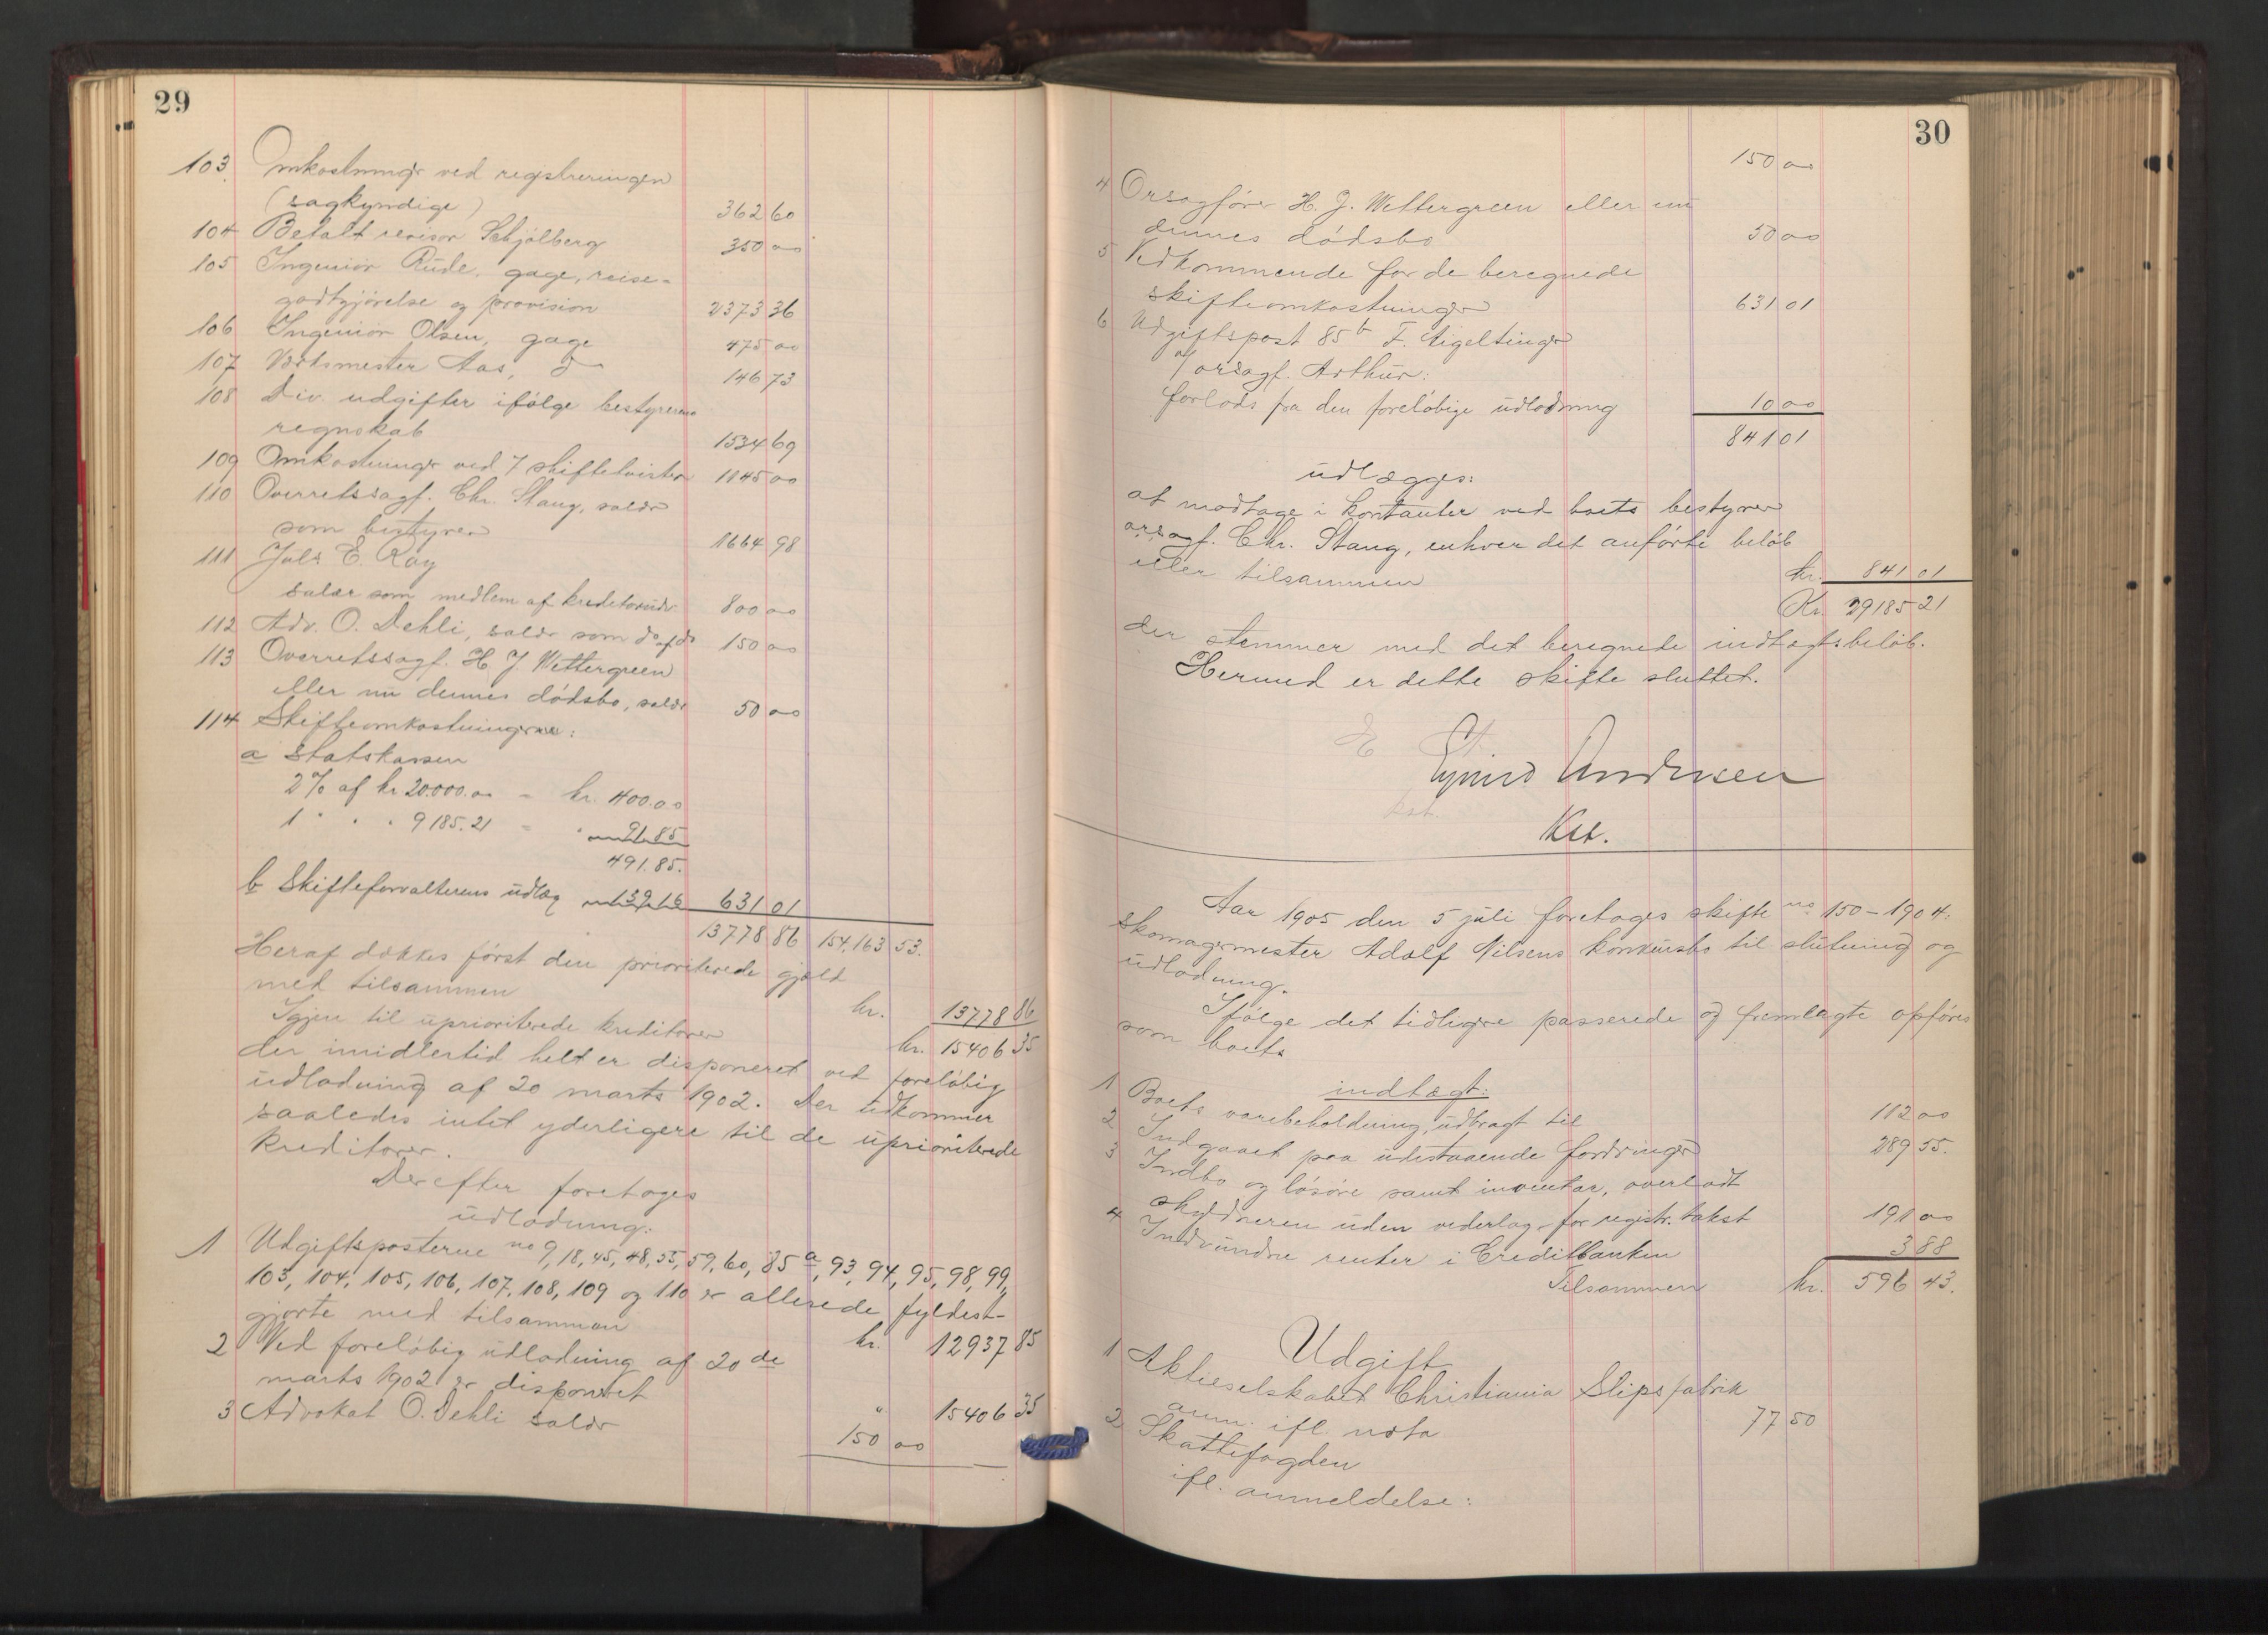 29
103. Omkostninger ved registreringen
(sagkyndige) 362 60
104 Betalt revisor Schjølberg 350 00
105 Ingeniør Rude, gage, reise-
godtgjørelse og provision 2373 36
106 Ingeniør Olsen, gage 475 00
107 Værksmester Aas, do 146 73
108 Div. udgifter ifølge bestyrerens
regnskab 1534 69
109 Omkostninger ved 7 skifte 1145 00
110 Overretssagf. Chr. Stang, salær
som bestyrer 1664 98
111 Juls E. Roy
salær som medlem af kreditorudv. 800 00
112 Adv. O. Dehli, salær som do af do 150 00
113 Overretssagf. H J Wettergreen
eller nu dennes dødsbo, salær 50 00
114 Skifteomkostningerne:
a Statskassen
2% af kr 20.000.00 - kr. 400.00
1 " " " 9185.21 - " 91.85
491.85.
b Skifteforvalterens udlæg 139.16 631 01
13778 86 154.163 53.
Heraf dækkes først den prioriterede gjæld
med tilsammen kr. 13778 86
Igjen til uprioriterede kreditorer kr. 15406 35
der imidlertid helt er disponeret ved foreløbig
udlodning af 20 marts 1902. Der udkommer
saaledes intet yderligere til de uprioriterede
kreditorer.
Derefter foretages
udlodning:
1 Udgiftsposterne no 9, 18, 45, 48, 55, 59, 60, 85 a, 93, 94, 95, 98, 99,
103, 104, 105, 106, 107, 108, 109 og 110 er allerede fyldest-
gjorte med tilsammen kr. 12937 85
2 Ved foreløbig udlodning af 20de
marts 1902 er disponeret " 15406 35
3 Advokat O. Dehli salær 150 00
30
150 00
4 Orsagfører H. J. Wettergreen eller nu
dennes dødsbo 50 00
5 Vedkommende for de beregnede
skifteomkostninger 631 01
6 Udgiftspost 85 b F. Aigeltinger
v/ orsagf. Arthur:
forlods fra den foreløbige udlodning 10 00
841 01
udlægges:
at modtage i kontanter ved boets bestyrer
orsagf. Chr. Stang, enhver det anførte beløb
eller tilsammen kr. 841 01
Kr. 29185 21
der stemmer med det beregnede indtægtsbeløb.
Hermed er dette skifte sluttet.
Eyvind Andersen
Kst.
Aar 1905 den 5 juli foretages skifte no 150-1904:
Skomagermester Adolf Nilsens konkursbo til slutning og
udlodning.
Ifølge det tidligere passerede og fremlagte opføres
som boets
indtægt:
1 Boets varebeholdning, udbragt til 112 00
2 Indgaaet paa udestaaende fordringer 289 55.
3 Indbo og løsøre samt inventar, overladt
skyldneren uden vederlag - for registr. takst 191 00
4 Indvundne renter i Creditbanken 3 88
Tilsammen kr. 596 43.
Udgift
1 Aktieselskabet Christiania Slipsfabrik
anm. ifl. nota 77 50
2 Skattefogden
ifl. anmeldelse: